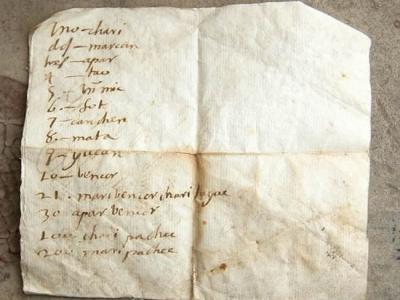 uno – chari
dos – marian
tres – apar
4 – tau
5. – himic
6. – sut
7 – canchen
8. – mata
9 – yucan
10 – bencor
21. maribencor chari tayue
30 apar bencor
100 chari pachac
200. mari pachac